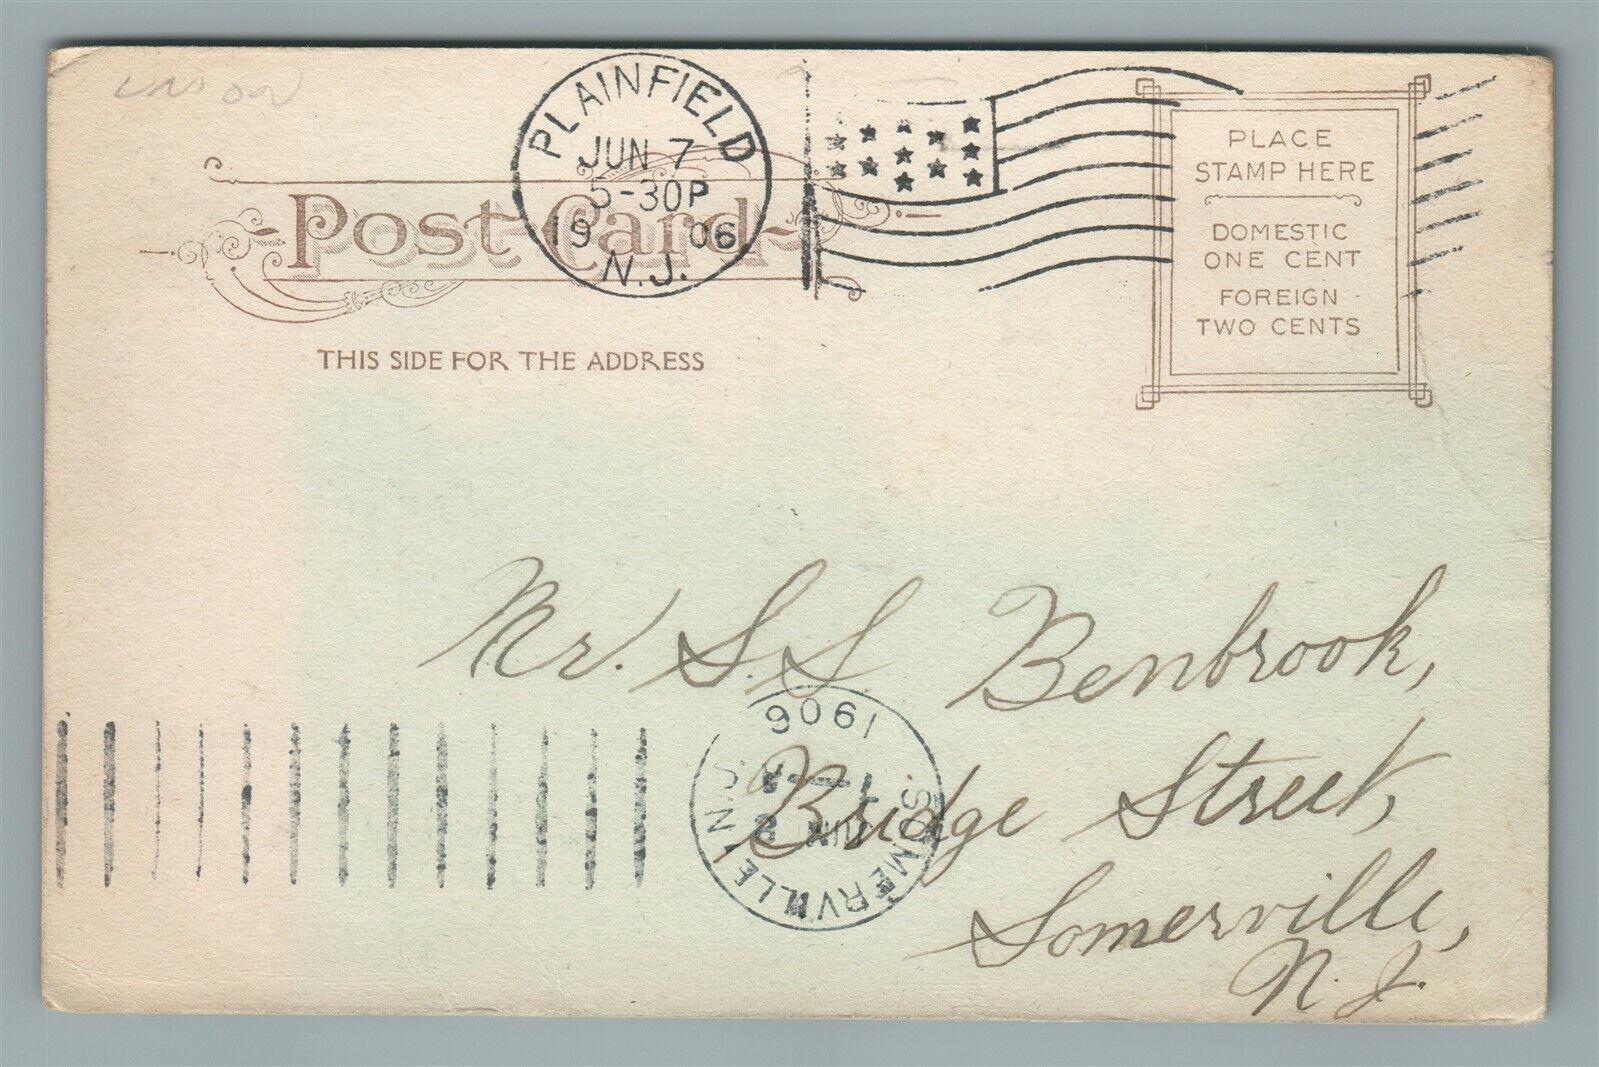 PLAINFIELD
JUN 7
5-30P
1906
N.J.
Post Card
THIS SIDE FOR THE ADDRESS
PLACE
STAMP HERE
DOMESTIC
ONE CENT
FOREIGN
TWO CENTS
Mr. S.S. Benbrook,
Bridge Street,
Somerville,
N.J.
SOMERVILLE N.J.
JUN
1906